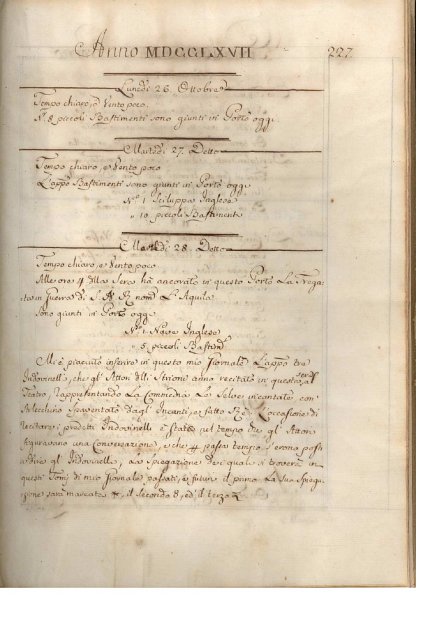 Anno MDCCLXVII 227
Lunedì 26. Ottobre
Tempo chiaro, e Vento poco.
N.° 8 piccoli Bastimenti sono giunti in Porto oggi.
Martedì 27. Detto
Tempo chiaro, e Vento poco
L'app.° Bastimenti sono giunti in Porto oggi
N.° 1 Sciluppa Inglese
" 10 piccoli Bastimenti
28. Detto
Tempo chiaro, e Vento poco
Alle ore 4 della Sera ha ancorato in questo Porto La Frega
ta in guerra di S. A. R. nom.ta L'Aquila
Sono giunti in Porto oggi
N.° 1 Nave Inglese
" 5 piccoli Bastim.ti
Mi è piaciuto inserire in questo mio Giornale L'app.° tre
Indovinelli, che gl' Attori delli Strioni anno recitato in questo
Teatro, rappresentando La Commedia La Selve incantate, con
Arlecchino spaventato dagl' Incanti, e fatto Rè. L'occasione di
recitare i predetti Indovinelli è stata nel tempo che gl' Attori
figuravano una Conversazione, e che p passa tempo s'erano posti
a dire gl' Indovinelli, La Spiegazione de i quali si troverà in
questi Tomi di mio Giornale passati, e futuri il primo La sua Spiega
zione sarà marcata il Secondo 8, ed il terzo